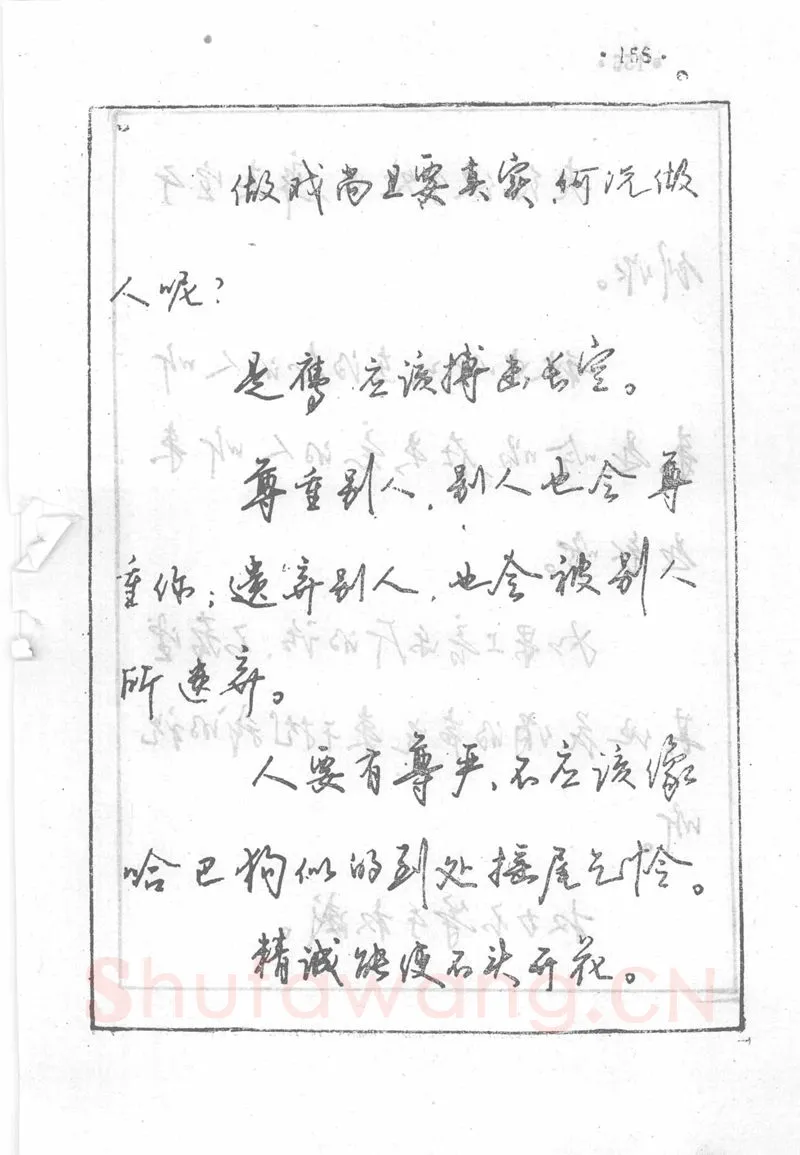 ·155·
做戏尚且要真实,何况做
人呢?
是鹰应该搏击长空。
尊重别人,别人也会尊
重你;遗弃别人,也会被别人
所遗弃。
人要有尊严,不应该像
哈巴狗似的到处摇尾乞怜。
精诚能使石头开花。
Shufawang.CN